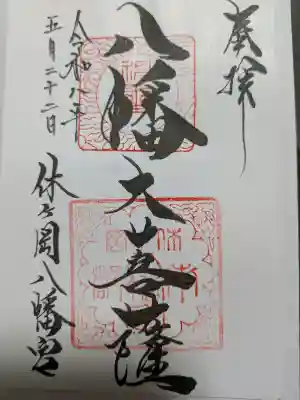 奉拝
八幡大菩薩
令和八年
五月二十二日
休ヶ岡八幡宮